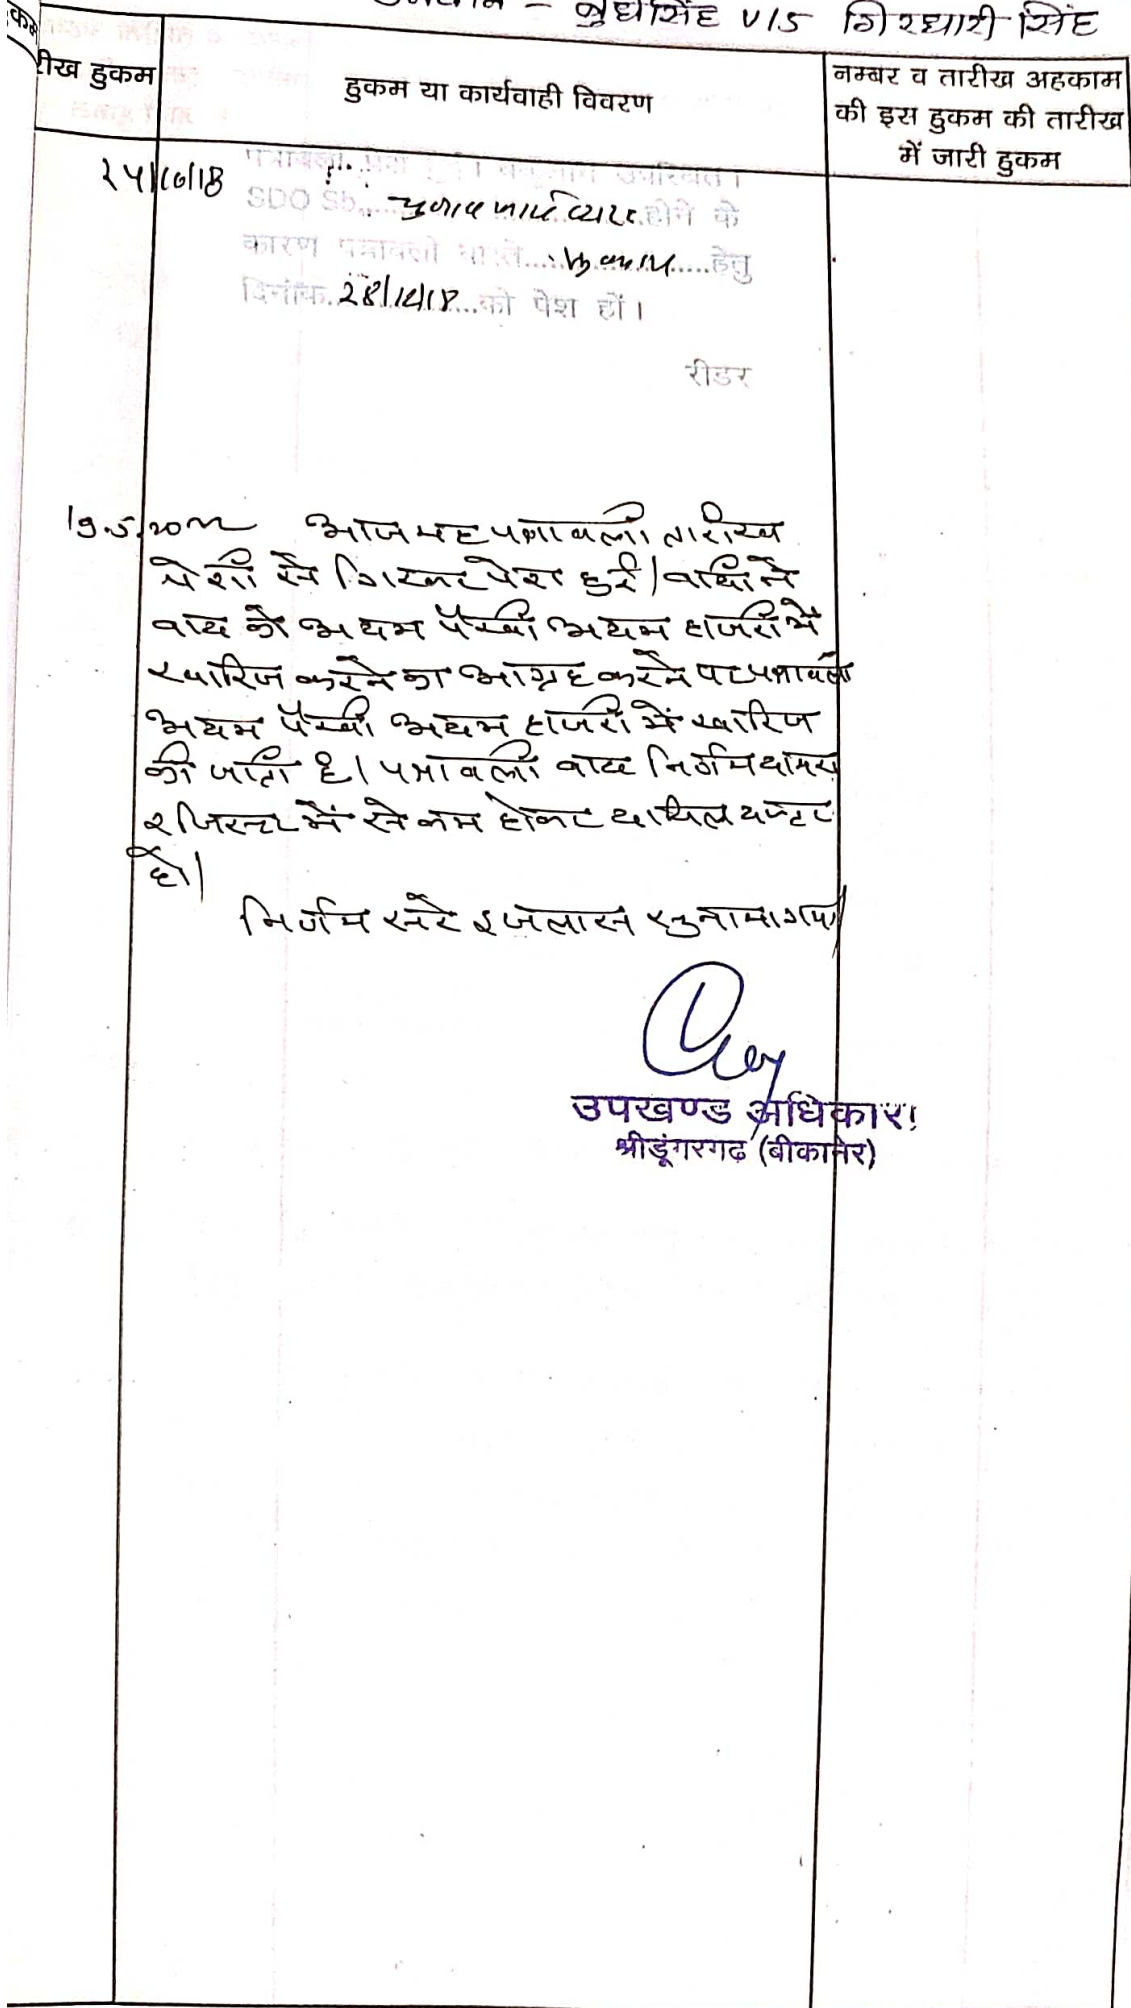 बुधसिंह V/S गिरधारी सिंह
रीख हुकम
हुकम या कार्यवाही विवरण
नम्बर व तारीख अहकाम
की इस हुकम की तारीख
में जारी हुकम
उपस्थित।
SDO Sb. चुनाव कार्य व्यस्त होने के
कारण पत्रावली वास्ते हेतु
दिनांक को पेश हों।
रीडर
आज यह पत्रावली तारीख
पेशी से गिरकर पेश हुई। वादी ने
वाद को अदम पैरवी अदम हाजरी में
खारिज करने का आग्रह करने पर पत्रावली
अदम पैरवी अदम हाजरी में खारिज
की जाती है। पत्रावली बाद निर्णय
रजिस्टर में से कम होकर दाखिल दफ्तर
हो।
निर्णय सरे इजलास सुनाया गया।
उपखण्ड अधिकारी
श्रीडूंगरगढ़ (बीकानेर)